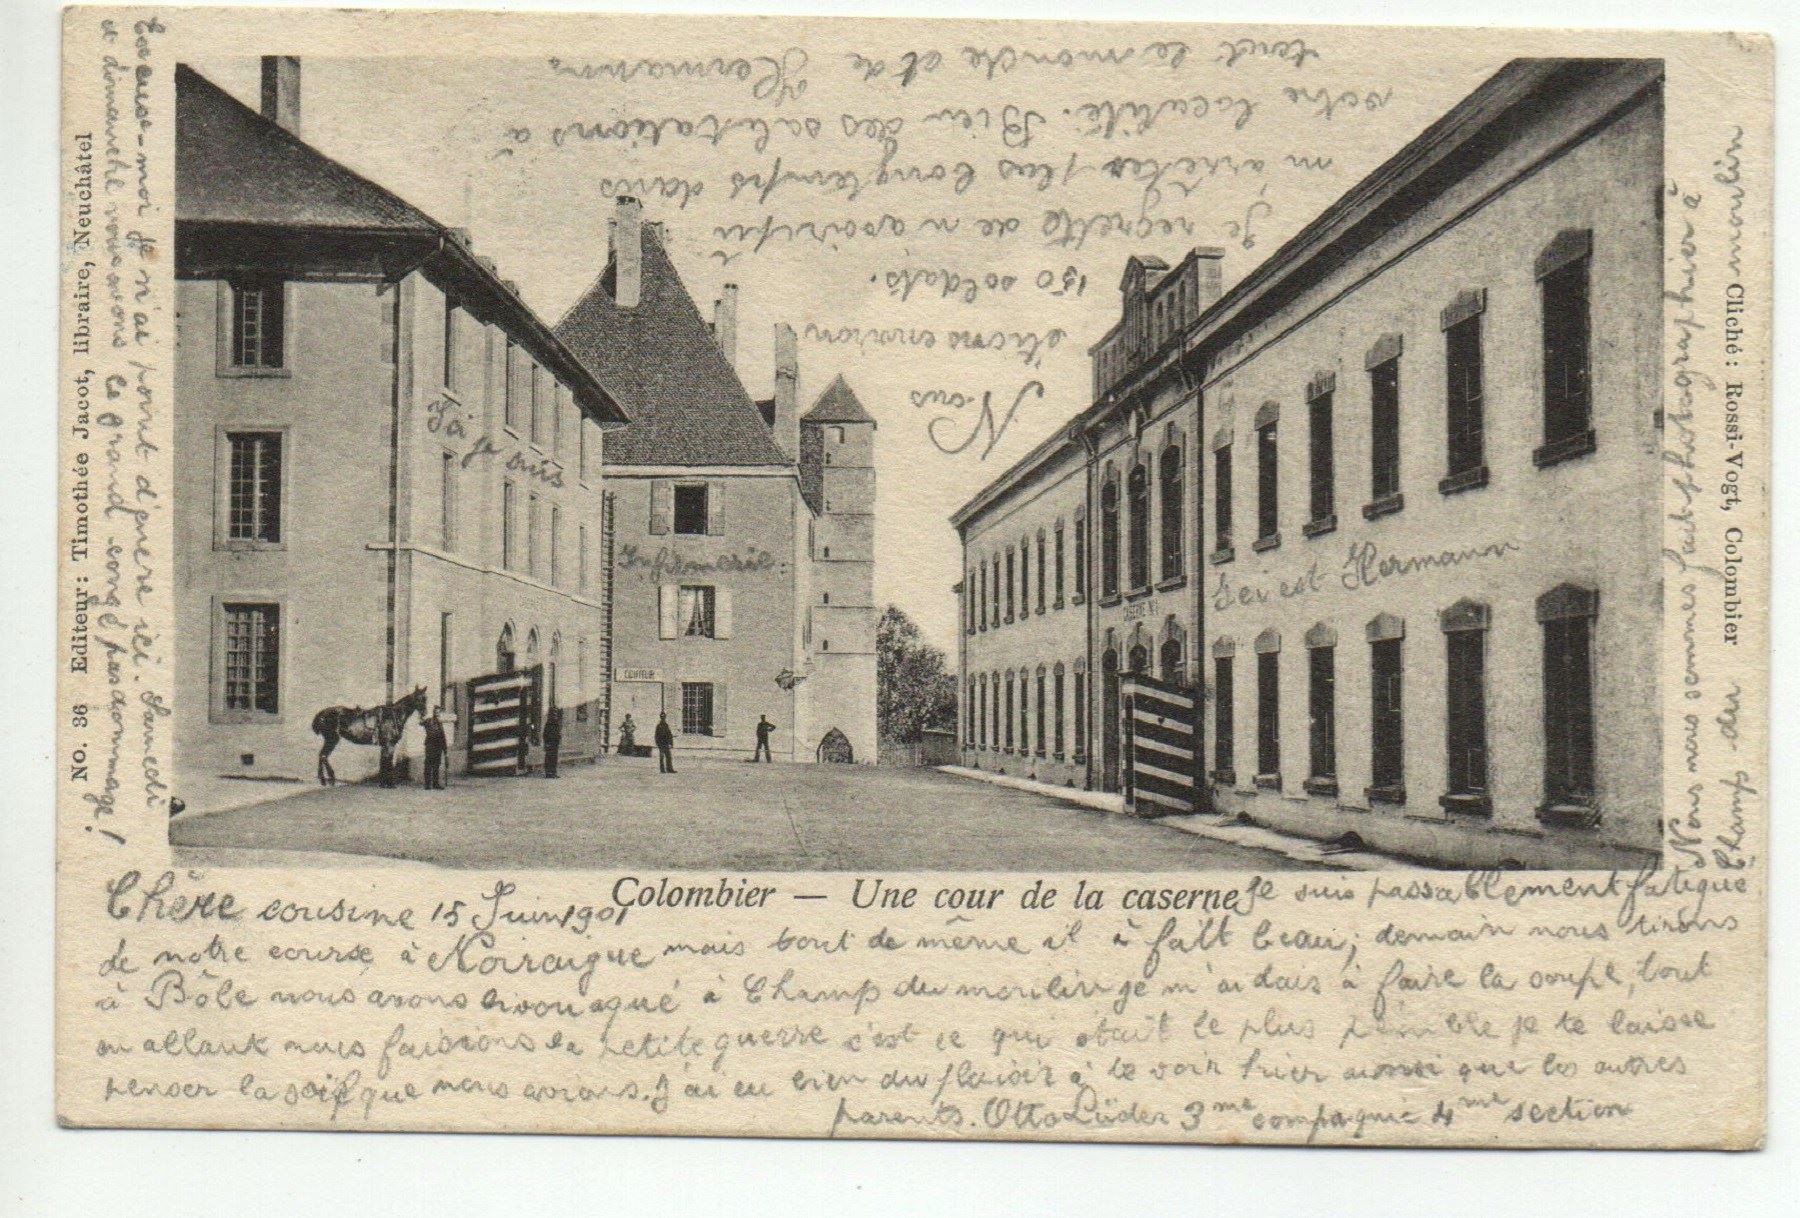 Chère cousine 15 Juin 1901
Colombier — Une cour de la caserne
Je suis passablement fatigué
de notre course à Noiraigue mais tout de même il à fait beau; demain nous tirons
à Bôle nous avons bivouaqué à Champ du moulin je m'aidais à faire la soupe, tout
en allant nous faisions la petite guerre c'est ce qui était le plus pénible je te laisse
penser la soif que nous avions. J'ai eu bien du plaisir à te voir hier aussi que les autres
parents. Otto Lüder 3me compagnie 4me section
Excuse-moi je n'ai point d'encre ici. Samedi
et dimanche nous avons le grand congé pas dommage!
NO. 36 Editeur: Timothée Jacot, libraire, Neuchâtel
Cliché: Rossi-Vogt, Colombier
Nous nous sommes fait photographier à
Champ du moulin
Nous
étions environ
150 soldats.
Je regrette de n'avoir pu
m'arrêter plus longtemps dans
votre localité. Bien des salutations à
tout le monde et de Hermann
Ici je suis
Infirmerie
Ici est Hermann
COIFFEUR
CASERNE No